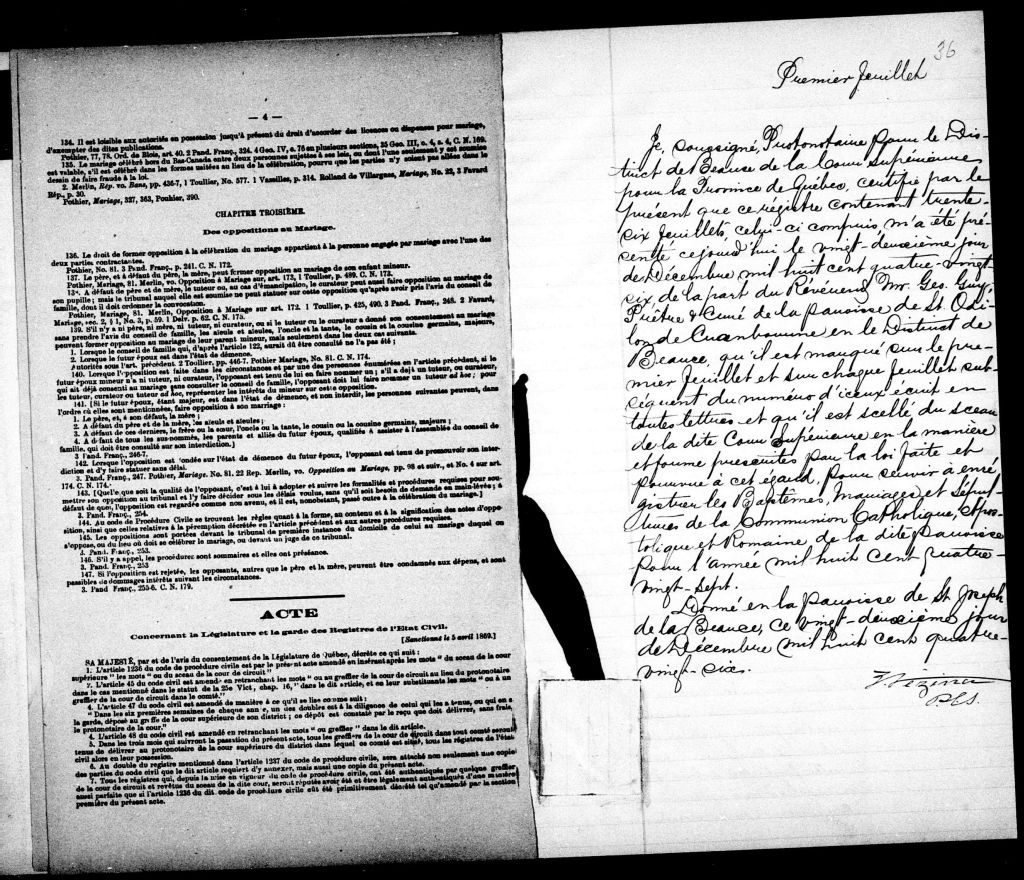 — 4 —
134. Il est loisible aux autorités en possession jusqu'à présent du droit d'accorder des licences ou dispenses pour mariage,
d'exempter des dites publications.
Pothier, 77, 78. Ord. de Blois, art. 40. 2 Pand. Franç., 324. 4 Geo. IV, c. 76 en plusieurs sections, 35 Geo. III, c. 4, s. 4, C. N. 169.
135. Le mariage célébré hors du Bas-Canada entre deux personnes sujettes à ses lois, ou dont l'une seulement y est soumise
est valable, s'il est célébré dans les formes usitées au lieu de la célébration, pourvu que les parties n'y soient pas allées dans le
dessein de faire fraude à la loi.
2. Merlin, Rép. vo. Bans, pp. 436-7, 1 Toullier, No. 577. 1 Vazeilles, p. 314. Rolland de Villargues, Mariage, No. 22, 3 Favard
Rép., p. 30.
Pothier, Mariage, 327, 363, Pouhier, 390.
CHAPITRE TROISIÈME.
Des oppositions au Mariage.
136. Le droit de former opposition à la célébration du mariage appartient à la personne engagée par mariage avec l'une des
deux parties contractantes.
Pothier, No. 81. 3 Pand. Franç., p. 241. C. N. 172.
137. Le père, et à défaut du père, la mère, peut former opposition au mariage de son enfant mineur.
Pothier, Mariage, 81. Merlin, vo. Opposition à Mariage sur art. 173, 1 Toullier, p. 489. C. N. 173.
138. A défaut de père et de mère, le tuteur ou, au cas d'émancipation, le curateur peut aussi faire opposition au mariage de
son pupille; mais le tribunal auquel elle est soumise ne peut statuer sur cette opposition qu'après avoir pris l'avis du conseil de
famille, dont il doit ordonner la convocation.
Pothier, Mariage, 81. Merlin, Opposition à Mariage sur art. 172. 1 Toullier, p. 425, 490. 3 Pand. Franç., 248. 2 Favard,
Mariage, sec. 2, § 1, No. 3, p. 59. 1 Delv. p. 62. C. N. 175.
139. S'il n'y a ni père, ni mère, ni tuteur, ni curateur, ou si le tuteur ou le curateur a donné son consentement au mariage
sans prendre l'avis du conseil de famille, les aïeuls et aïeules, l'oncle et la tante, le cousin et la cousine germains, majeurs,
peuvent former opposition au mariage de leur parent mineur, mais seulement dans les deux cas suivants.
1. Lorsque le conseil de famille qui, d'après l'article 122, aurait dû être consulté ne l'a pas été;
2. Lorsque le futur époux est dans l'état de démence.
Autorités sous l'art. précédent. 2 Toullier, pp. 446-7. Pothier Mariage, No. 81. C. N. 174.
140. Lorsque l'opposition est faite dans les circonstances et par une des personnes énumérées en l'article précédent, si le
futur époux mineur n'a ni tuteur, ni curateur, l'opposant est tenu de lui en faire nommer un; s'il a déjà un tuteur, ou curateur,
qui ait déjà consenti au mariage sans consulter le conseil de famille, l'opposant doit lui faire nommer un tuteur ad hoc; pour
les tuteur, curateur ou tuteur ad hoc, représenter les intérêts du mineur sur cette opposition.
141. [Si le futur époux, étant majeur, est dans l'état de démence, et non interdit, les personnes suivantes peuvent, dans
l'ordre où elles sont mentionnées, faire opposition à son mariage:
1. Le père, et, à son défaut, la mère;
2. A défaut du père et de la mère, les aïeuls et aïeules;
3. A défaut de ces derniers, le frère ou la sœur, l'oncle ou la tante, le cousin ou la cousine germains, majeurs;
4. A défaut de tous les sus-nommés, les parents et alliés du futur époux, qualifiés à assister à l'assemblée du conseil de
famille, qui doit être consulté sur son interdiction.]
3 Pand. Franç., 246-7.
142. Lorsque l'opposition est fondée sur l'état de démence du futur époux, l'opposant est tenu de promouvoir son inter-
diction et d'y faire statuer sans délai.
3. Pand. Franç., 247. Pothier, Mariage, No. 81. 22 Rep. Merlin, vo. Opposition au Mariage, pp. 98 et suiv., et No. 4 sur art.
174. C. N. 174.
143. [Quelle que soit la qualité de l'opposant, c'est à lui à adopter et suivre les formalités et procédures requises pour sou-
mettre son opposition au tribunal et l'y faire décider sous les délais voulus, sans qu'il soit besoin de demande en main-levée; à
défaut de quoi, l'opposition est regardée comme non avenue, et il est, nonobstant, passé outre à la célébration du mariage.]
3. Pand. Franç., 254.
144. Au code de Procédure Civile se trouvent les règles quant à la forme, au contenu et à la signification des actes d'oppo-
sition, ainsi que celles relatives à la péremption décrétée en l'article précédent et aux autres procédures requises.
145. Les oppositions sont portées devant le tribunal de première instance du domicile de celui au mariage duquel on
s'oppose, ou du lieu où doit se célébrer le mariage, ou devant un juge de ce tribunal.
3. Pand. Franç., 253.
146. S'il y a appel, les procédures sont sommaires et elles ont préséance.
3. Pand. Franç., 253
147. Si l'opposition est rejetée, les opposants, autres que le père et la mère, peuvent être condamnés aux dépens, et sont
passibles de dommages intérêts suivant les circonstances.
3. Pand Franç., 255-6. C. N. 179.
ACTE
Concernant la Législature et la garde des Registres de l'Etat Civil.
[Sanctionné le 5 avril 1869.]
SA MAJESTÉ, par et de l'avis du consentement de la Législature de Québec, décrète ce qui suit:
1. L'article 1236 du code de procédure civile est par le présent acte amendé en insérant après les mots "du sceau de la cour
supérieure" les mots "ou du sceau de la cour de circuit."
2. L'article 45 du code civil est amendé en retranchant les mots "ou au greffier de la cour de circuit au lieu du protonotaire
dans le cas mentionné dans le statut de la 25e Vict., chap. 16," dans le dit article, et en leur substituant les mots "ou à un
greffier de la cour de circuit dans le comté."
4. L'article 47 du code civil est amendé de manière à ce qu'il se lise comme suit:
"Dans les six premières semaines de chaque année, un des doubles est à la diligence de celui qui les a tenus, ou qui en a
la garde, déposé au greffe de la cour supérieure de son district; ce dépôt est constaté par le reçu que doit délivrer, sans frais,
le protonotaire de la cour."
4. L'article 48 du code civil est amendé en retranchant les mots "ou greffier" dans le dit article.
5. Dans les trois mois qui suivront la passation du présent acte, tous les greffiers de la cour de circuit dans tout comté seront
tenus de délivrer au protonotaire de la cour supérieure du district dans lequel ce comté est situé, tous les registres de l'état
civil alors en leur possession.
6. Au double du registre mentionné dans l'article 1237 du code de procédure civile, sera attaché non seulement une copie
des parties du code civil que le dit article requiert d'y annexer, mais aussi une copie du présent acte.
7. Tous les registres qui, depuis la mise en vigueur du code de procédure civile, ont été authentiqués par quelque greffier
de la cour de circuit et revêtus du sceau de la dite cour, seront réputés avoir été et être légalement authentiqués d'une manière
aussi parfaite que si l'article 1236 du dit code de procédure civile eût été primitivement décrété tel qu'amendé par la section
première du présent acte.
36
Premier feuillet
Je, soussigné, Protonotaire pour le Dis-
trict de Beauce de la Cour Supérieure
pour la Province de Québec, certifie par le
présent que ce régistre contenant trente-
six feuillets, celui-ci compris, m'a été pré-
senté cejourd'hui le vingt-deuxième jour
de Décembre mil huit cent quatre-vingt-
six, de la part du Révérend Mr. Geo. Guy,
Prêtre & Curé de la Paroisse de St Odi-
lon de Cranbourne en le District de
Beauce, qu'il est marqué sur le pre-
mier feuillet et sur chaque feuillet sub-
séquent du numéro d'iceux écrit en
toutes lettres et qu'il est scellé du sceau
de la dite Cour Supérieure en la manière
et forme prescrites par la loi faite et
pourvue à cet égard, pour servir à enré-
gistrer les Baptêmes, Mariages et Sépul-
tures de la Communion Catholique, Apos-
tolique et Romaine de la dite Paroisse
pour l'année mil huit cent quatre-
vingt-sept.
Donné en la paroisse de St Joseph
de la Beauce, ce vingt-deuxième jour
de Décembre mil huit cent quatre-
vingt-six.
Vézina
P.C.S.